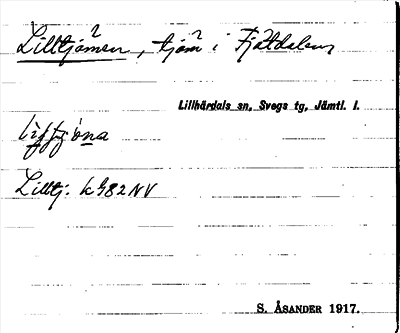 Lilltjärnen, tjärn i Fjätdalen,
Lillhärdals sn, Svegs tg, Jämtl. l.
Lilltj. k 982 NV
S. ÅSANDER 1917.